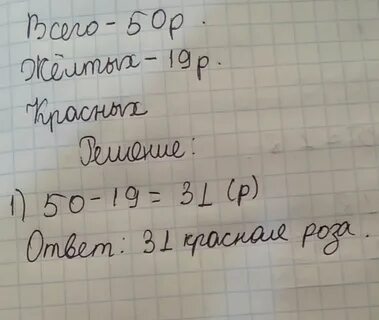 Всего - 50р.
Жёлтых - 19р.
Красных
Решение:
1) 50-19= 31 (р)
Ответ: 31 красная роза.